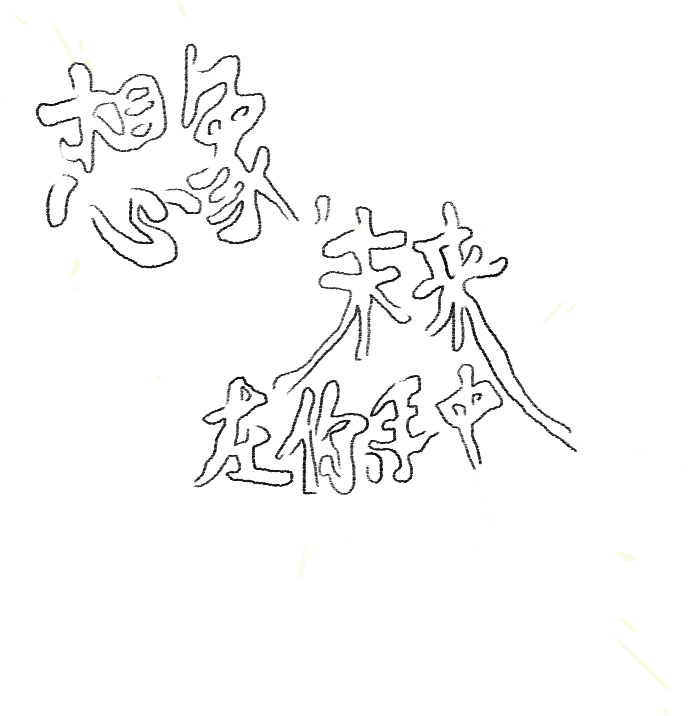 想象,
未来
在你手中